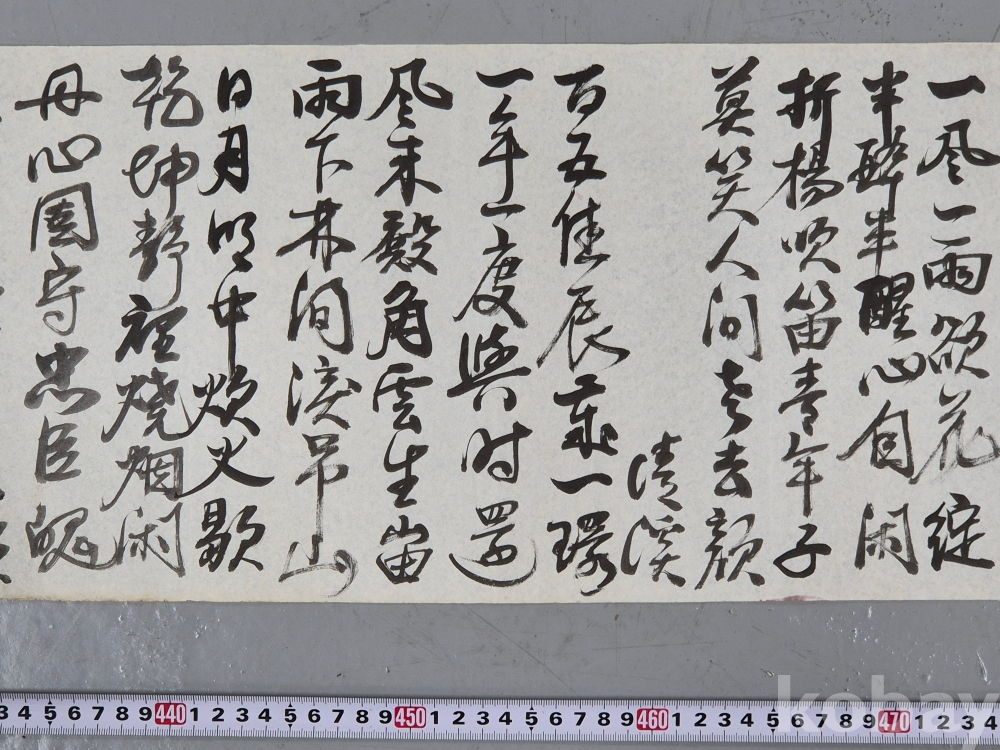 一风一雨欲花綻
半醉半醒心自闲
折楊吹笛青年子
莫笑人间老去顔
清溪
百五佳辰一環
一年一度與时還
风来殿角雲生峀
雨下林间淚吊山
日月明中炊火歇
乾坤静裡燒烟闲
丹心固守忠臣
3 4 5 6 7 8 9 440 1 2 3 4 5 6 7 8 9 450 1 2 3 4 5 6 7 8 9 460 1 2 3 4 5 6 7 8 9 470 1 2 3 4
kobay